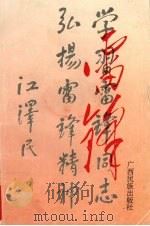 雷锋
学習雷鋒同志
弘揚雷鋒精神
江泽民
广西民族出版社